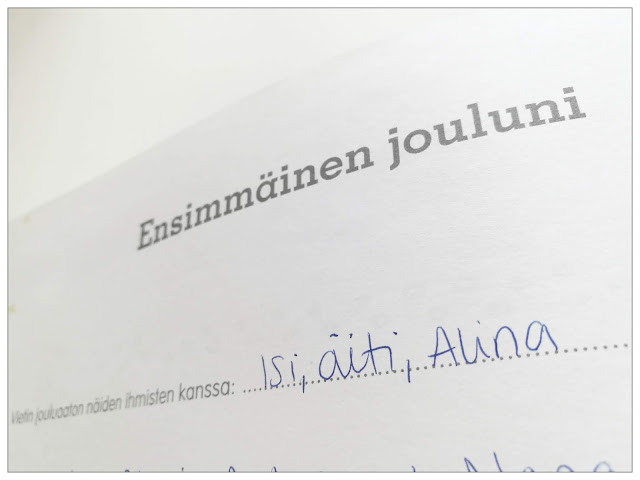 Ensimmäinen jouluni
Vietin jouluaaton näiden ihmisten kanssa: Isi, äiti, Alina